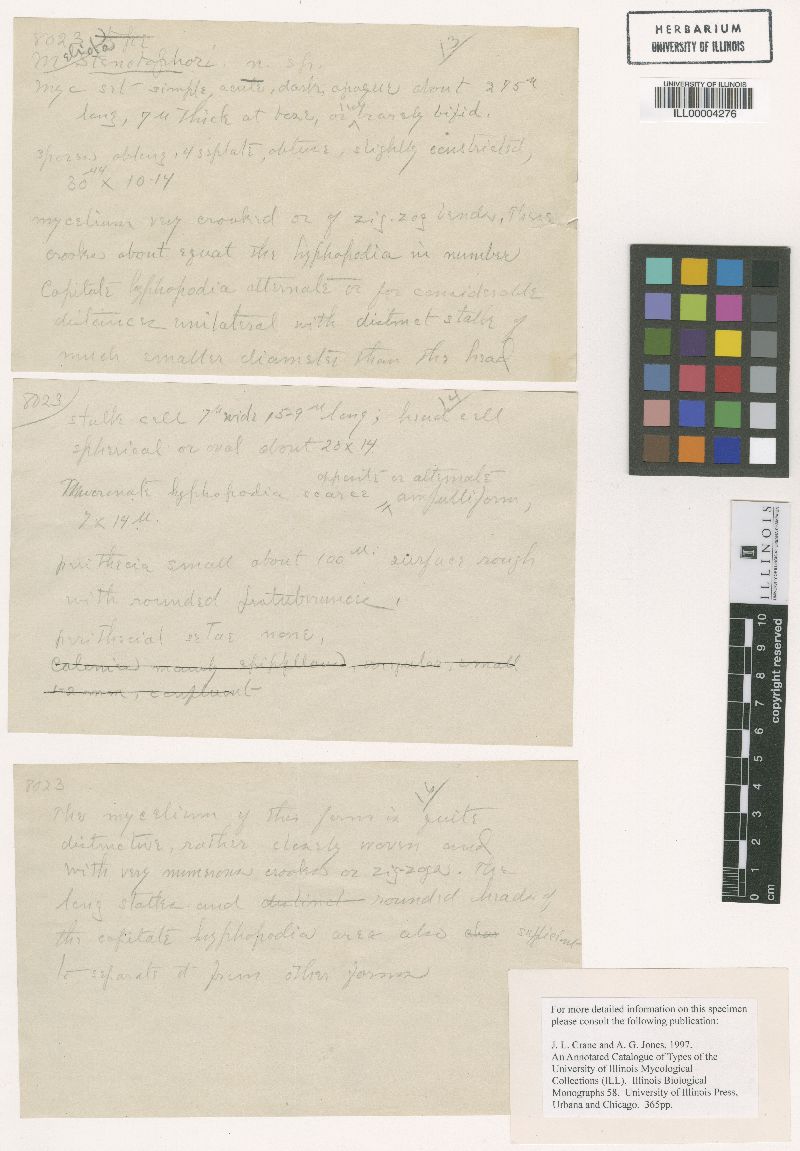 8023
13
Meliola Stenotaphori. n. sp.
Myc set simple, acute, dark, opaque about 275 µ
long, 7 µ thick at base, or very rarely bifid.
spores oblong, 4 septate, obtuse, slightly constricted,
30 µ x 10-14
mycelium very crooked or of zig-zag bends, these
crooks about equal the hyphopodia in number
Capitate hyphopodia alternate or for considerable
distances unilateral with distinct stalk of
much smaller diameter than the head
8023
14
stalk cell 7 µ wide 5-9 µ long; head cell
spherical or oval about 20 x 14
Mucronate hyphopodia scarce opposite or alternate ampulliform,
7 x 14 µ.
perithecia small about 100 µ. surface rough
with rounded protuberances,
perithecial setae none,
Colonies mainly epiphyllous, irregular, small
1-2 mm, confluent
8023
16
The mycelium of this form is quite
distinctive, rather closely woven and
with very numerous crooks or zig-zags. The
long stalks and distinct rounded heads of
the capitate hyphopodia are also sufficient
to separate it from other forms
HERBARIUM
UNIVERSITY OF ILLINOIS
UNIVERSITY OF ILLINOIS
ILL00004276
ILLINOIS
copyright reserved
0 1 2 3 4 5 6 7 8 9 10
cm
For more detailed information on this specimen
please consult the following publication:
J. L. Crane and A. G. Jones, 1997.
An Annotated Catalogue of Types of the
University of Illinois Mycological
Collections (ILL). Illinois Biological
Monographs 58. University of Illinois Press,
Urbana and Chicago. 365pp.